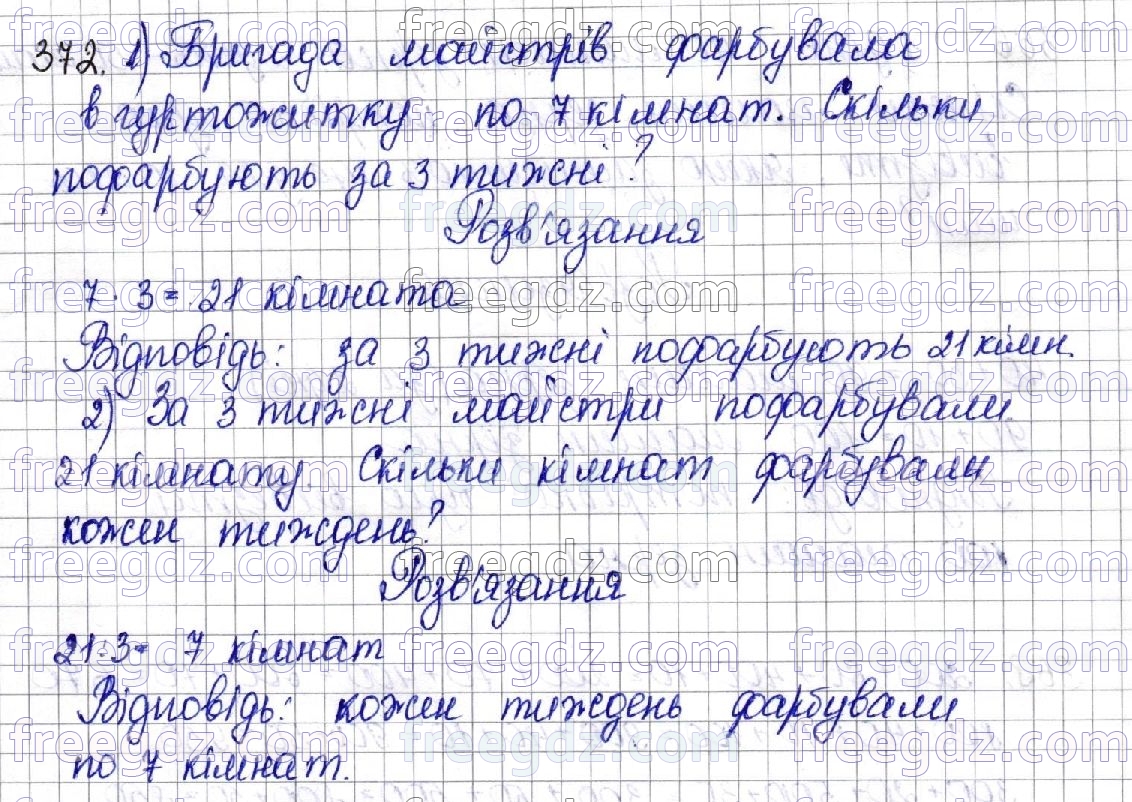 372. 1) Бригада майстрів фарбувала
в гуртожитку по 7 кімнат. Скільки
пофарбують за 3 тижні?
Розв'язання
7 · 3 = 21 кімната
Відповідь: за 3 тижні пофарбують 21 кімн.
2) За 3 тижні майстри пофарбували
21 кімнату. Скільки кімнат фарбували
кожен тиждень?
Розв'язання
21:3= 7 кімнат
Відповідь: кожен тиждень фарбували
по 7 кімнат.
freegdz.com